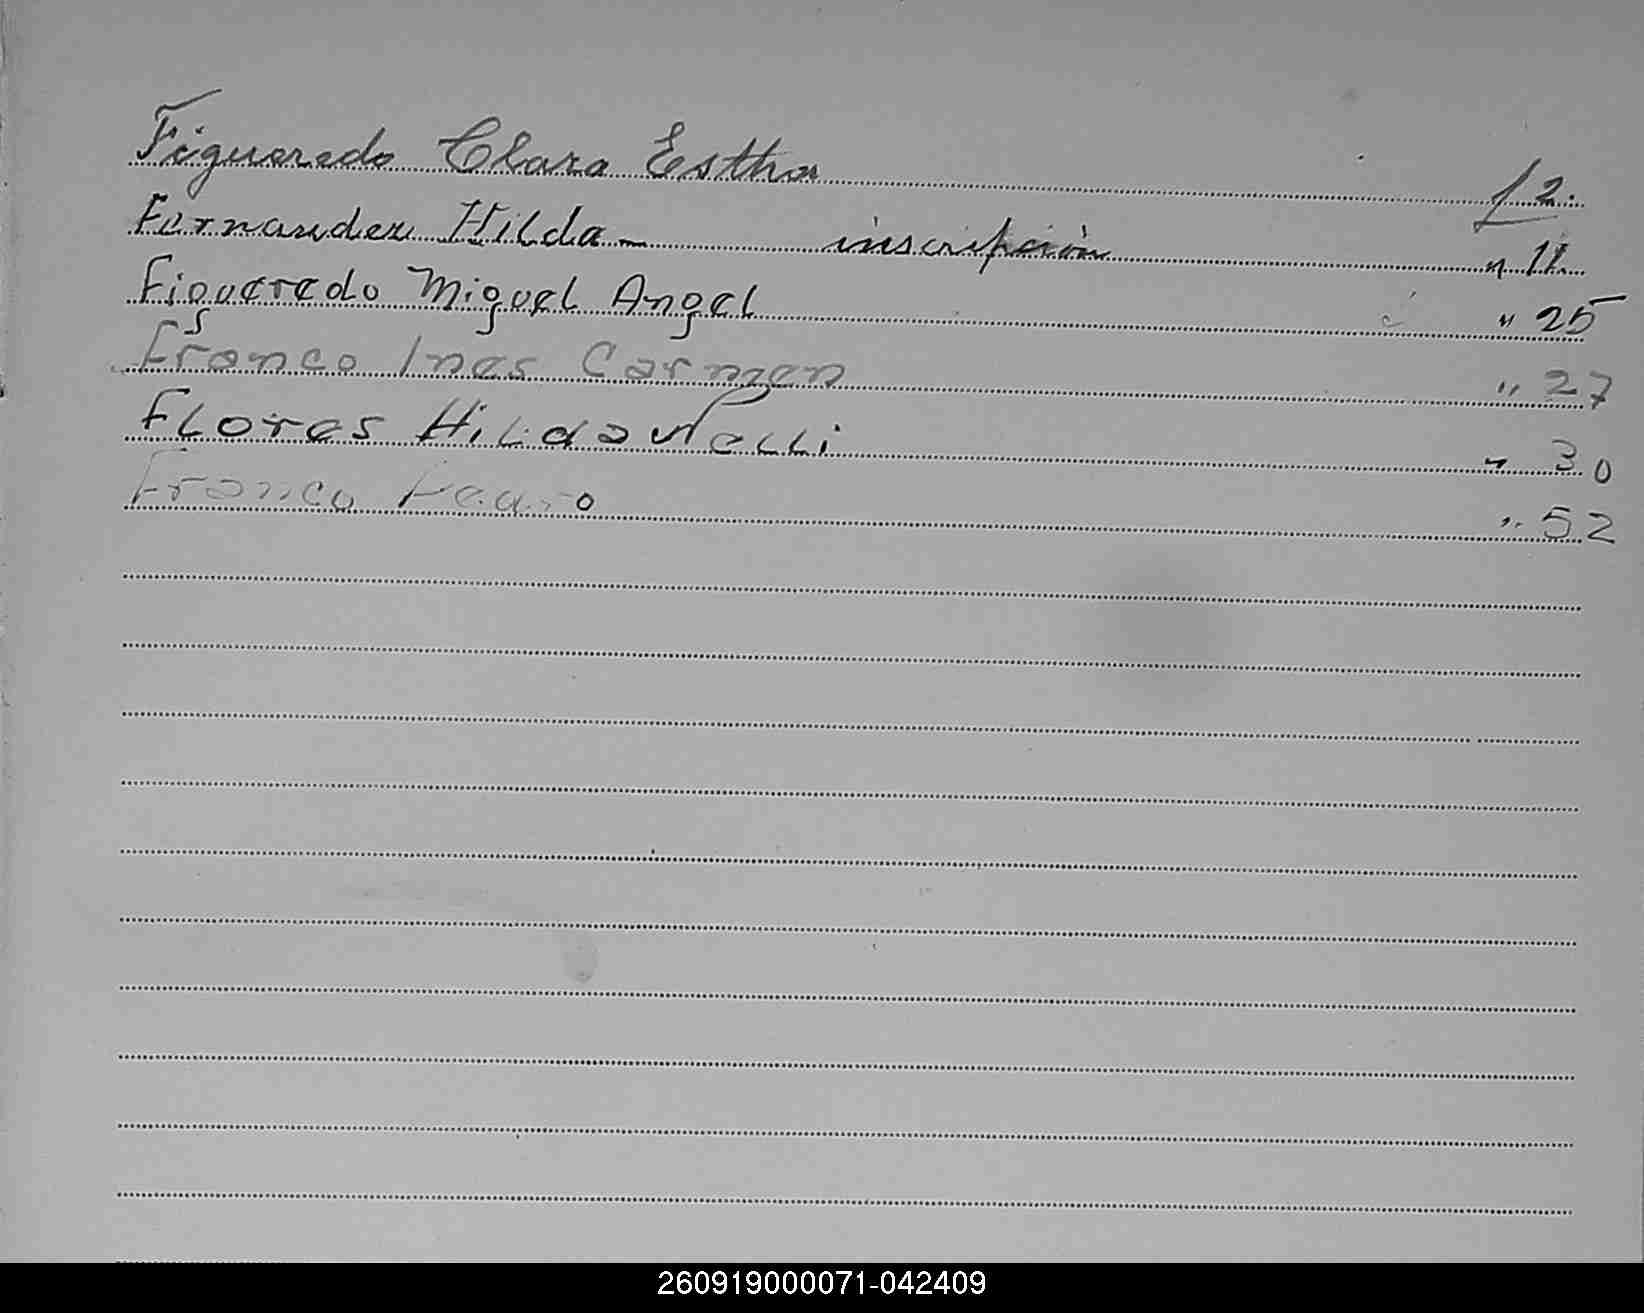 Figueredo Clara Esther f 2.
Fernandez Hilda inscripción " 11
Figueredo Miguel Angel " 25
Franco Ines Carmen " 27
Flores Hilda Nelli " 30
Franco Pedro " 52
260919000071-042409